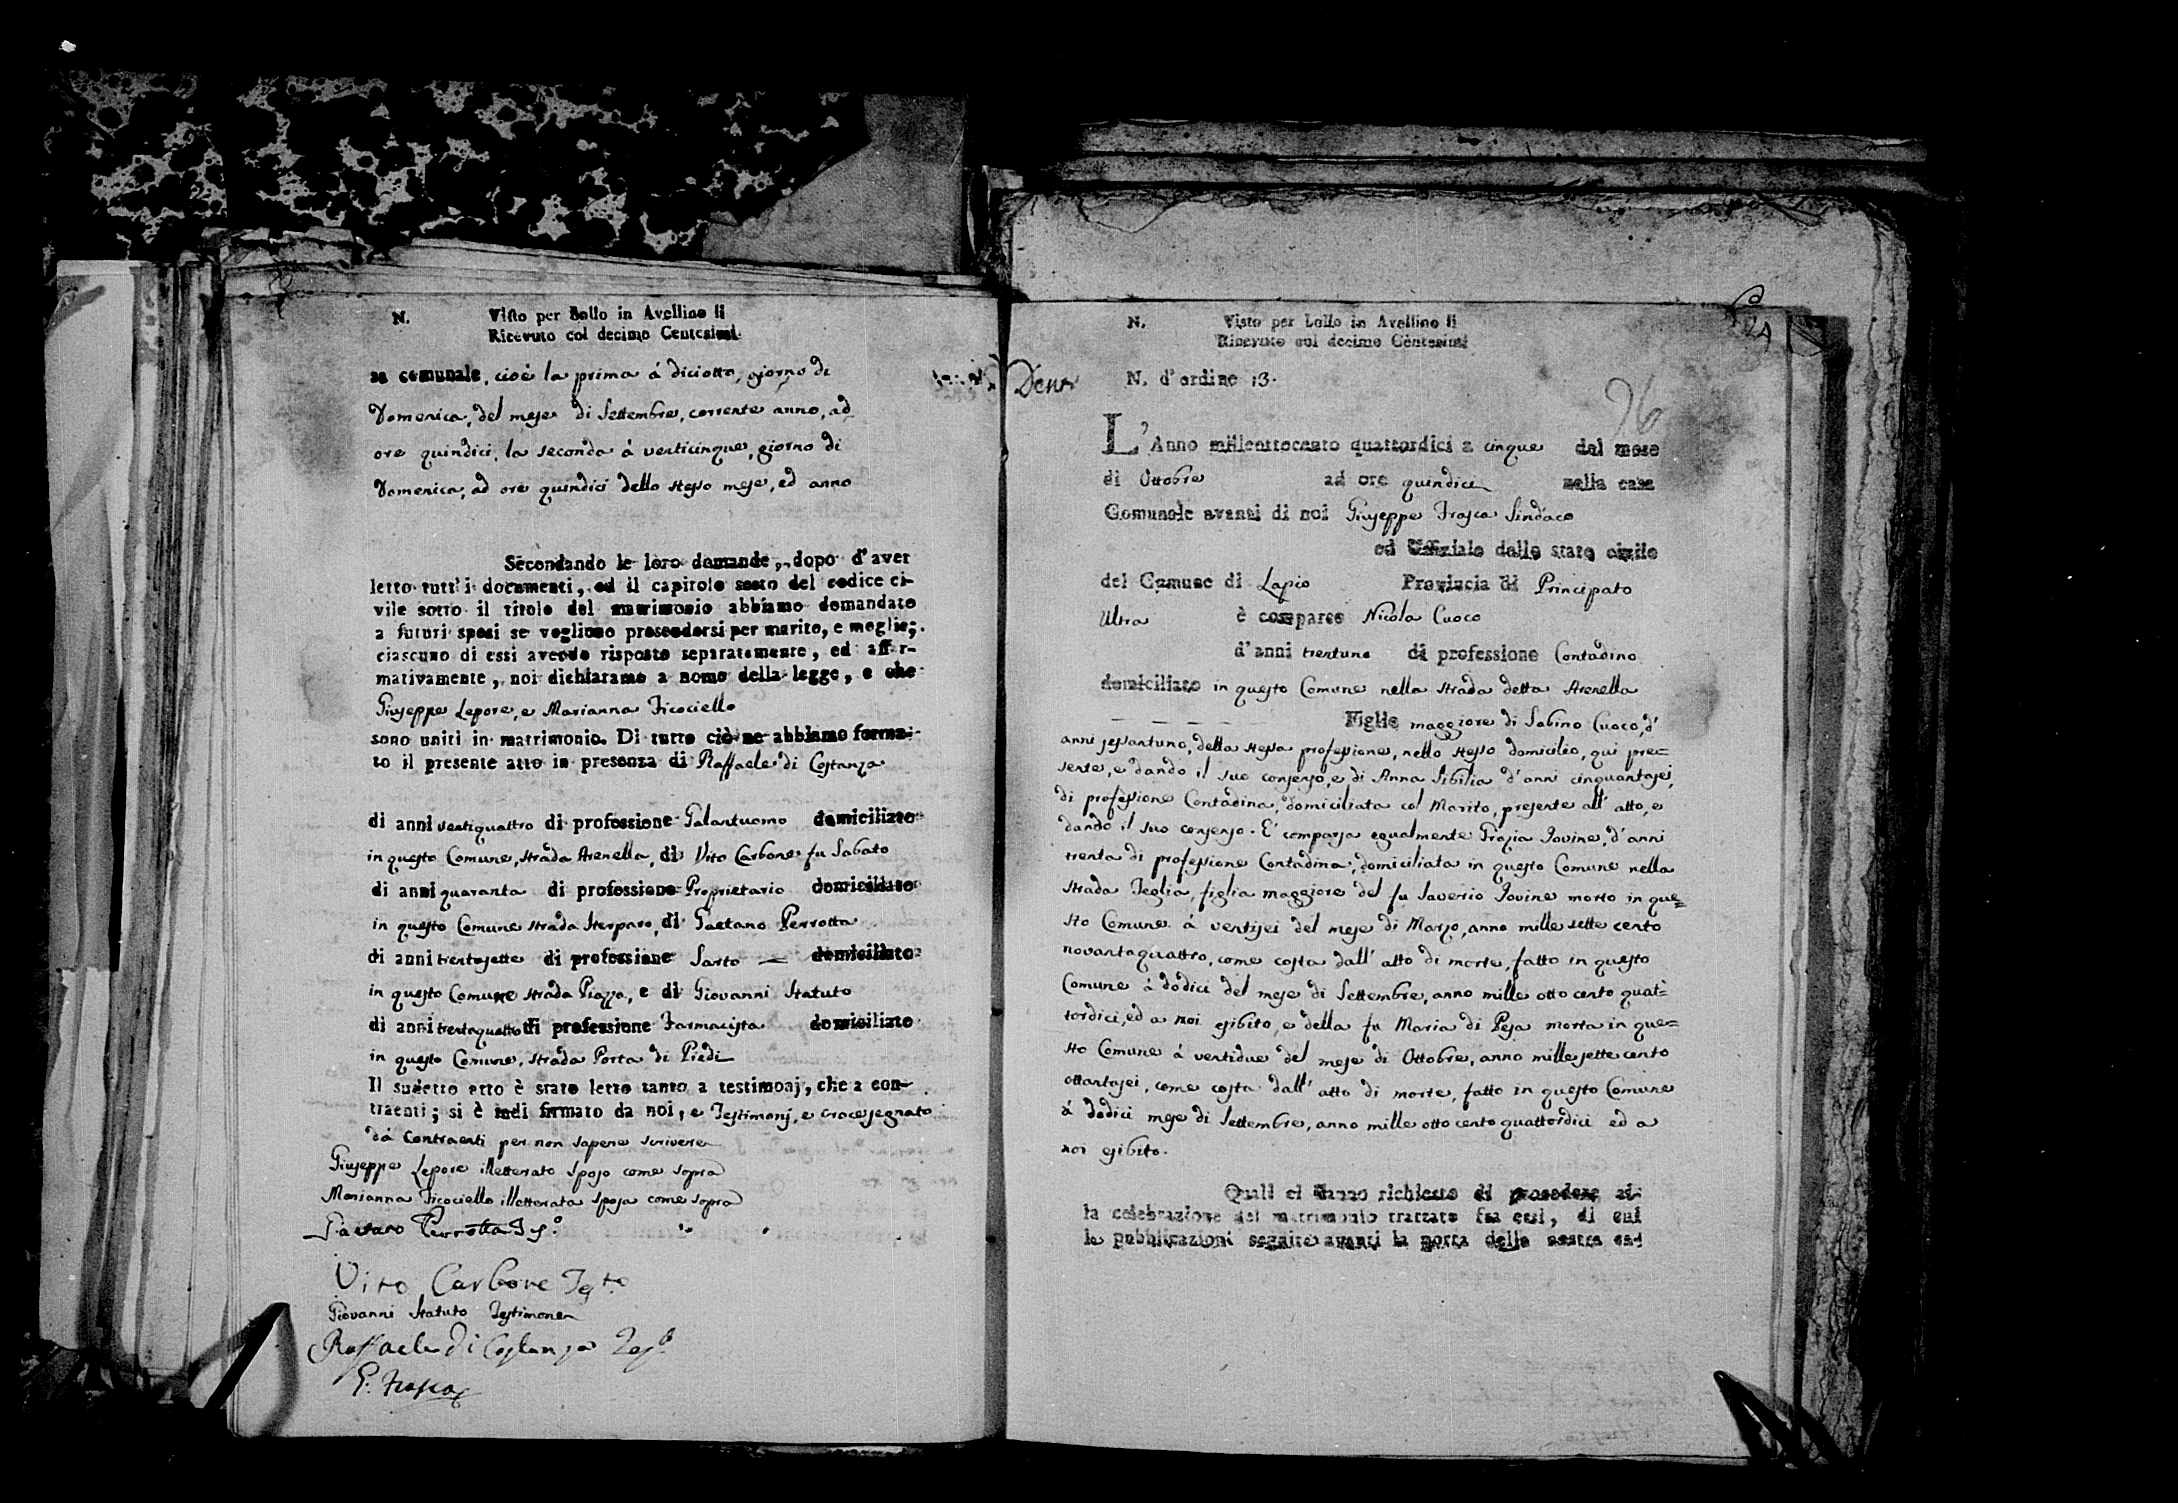 N. Visto per Bollo in Avellino li
Ricevuto col decimo Centesimi
sa comunale, cioè la prima à diciotto, giorno di
Domenica, del mese di Settembre, corrente anno, ad
ore quindici, la seconda à venticinque, giorno di
Domenica, ad ore quindici dello stesso mese, ed anno
Secondando le loro domande, dopo d'aver
letto tutt'i documenti, ed il capitolo sesto del codice ci-
vile sotto il titolo del matrimonio abbiamo domandato
a futuri sposi se vogliono prosendersi per marito, e moglie;
ciascuno di essi avendo risposto separatamente, ed affir-
mativamente, noi dichiaramo a nome della legge, e che
Giuseppe Lepore, e Marianna Ficociello
sono uniti in matrimonio. Di tutto ciò ne abbiamo forma-
to il presente atto in presenza di Raffaele di Costanza
di anni ventiquattro di professione Galantuomo domiciliato
in questo Comune, strada Arenella, di Vito Carbone fu Sabato
di anni quaranta di professione Proprietario domiciliato
in questo Comune strada Sterparo, di Gaetano Perrotta
di anni trentasette di professione Sarto domiciliato
in questo Comune strada Piazza, e di Giovanni Statuto
di anni trentaquattro di professione Farmacista domiciliato
in questo Comune, strada Porta di Piedi
Il sudetto atto è stato letto tanto a testimonj, che a con-
traenti; si è indi firmato da noi, e Testimonj, e crocesegnato
dà Contraenti per non sapere scrivere
Giuseppe Lepore illetterato sposo come sopra
Marianna Ficociello illetterata sposa come sopra
Gaetano Perrotta Tes.o
Vito Carbone Test.o
Giovanni Statuto Testimone
Raffaele Di Costanza Tes.o
G. Frasca
N. Visto per Bollo in Avellino li
Ricevuto col decimo Centesimi
N. d'ordine 13.
96
L'Anno milleottocento quattordici a cinque del mese
di Ottobre ad ore quindici nella casa
Comunale avanti di noi Giuseppe Frasca Sindaco
ed Uffiziale dello stato civile
del Comune di Lapio Provincia di Principato
Ultra è comparso Nicola Cuoco
d'anni trentuno di professione Contadino
domiciliato in questo Comune nella strada detta Arenella
Figlio maggiore di Sabino Cuoco, d'
anni sessantuno, della stessa professione, nello stesso domicilio, qui pre=
sente, e dando il suo consenso, e di Anna Sibilia d'anni cinquantasei,
di professione Contadina, domiciliata col Marito, presente all'atto, e
dando il suo consenso. E' comparsa egualmente Grazia Iovine, d'anni
trenta di professione Contadina, domiciliata in questo Comune nella
strada Teglia, figlia maggiore del fu Saverio Iovine morto in que=
sto Comune à ventisei del mese di Marzo, anno mille sette cento
novantaquattro, come costa dall'atto di morte, fatto in questo
Comune à dodici del mese di Settembre, anno mille otto cento quat=
tordici, ed a noi esibito, e della fu Maria di Pesa morta in que=
sto Comune à ventidue del mese di Ottobre, anno mille sette cento
ottantasei, come costa dall'atto di morte, fatto in questo Comune
à dodici mese di Settembre, anno mille otto cento quattordici ed a
noi esibito.
Quali ci hanno richiesto di procedere al-
la celebrazione del matrimonio trattato fra essi, di cui
le pubblicazioni seguite avanti la porta della nostra ca-